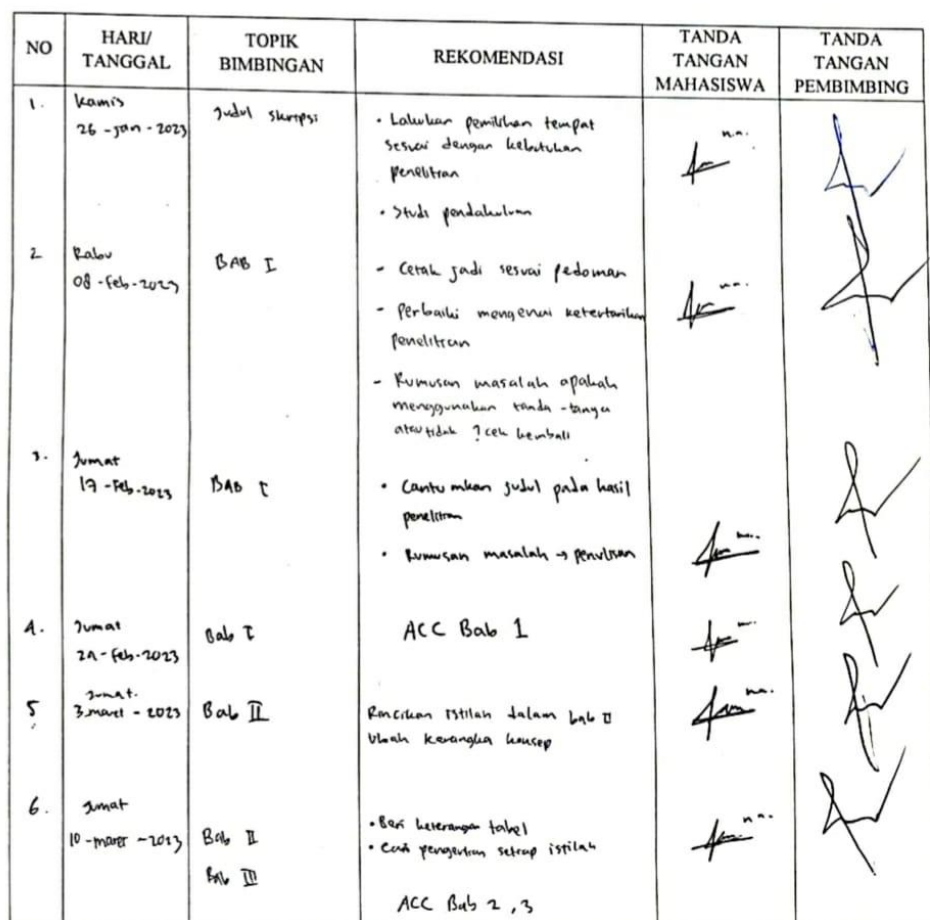 NO
HARI/
TANGGAL
TOPIK
BIMBINGAN
REKOMENDASI
TANDA
TANGAN
MAHASISWA
TANDA
TANGAN
PEMBIMBING
1.
Kamis
26 - Jan - 2023
Judul skripsi
• Lakukan pemilihan tempat
sesuai dengan kebutuhan
penelitian
• Studi pendahuluan
2
Rabu
08 - Feb - 2023
BAB I
- Cetak jadi sesuai pedoman
- Perbaiki mengenai ketertarikan
penelitian
- Rumusan masalah apakah
menggunakan tanda - tanya
atau tidak ? cek kembali
3.
Jumat
17 - Feb - 2023
BAB I
• Cantumkan judul pada hasil
penelitian
• Rumusan masalah → penulisan
4.
Jumat
24 - Feb - 2023
Bab I
ACC Bab 1
5
Jumat.
3 maret - 2023
Bab II
Rincikan istilah dalam bab II
Ubah kerangka konsep
6.
Jumat
10 - maret - 2023
Bab II
Bab III
• Beri keterangan tabel
• Cari pengertian setiap istilah
ACC Bab 2, 3